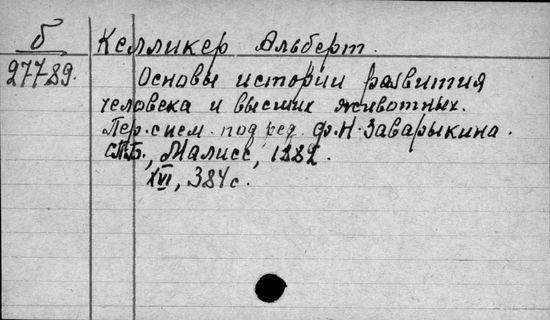 б Келликер Альберт.
27789. Основы истории развития
человека и высших животных.
Пер. с нем. под ред. Ф.Н. Заварыкина.
СПБ., Малисс, 1882.
XVI, 384 с.